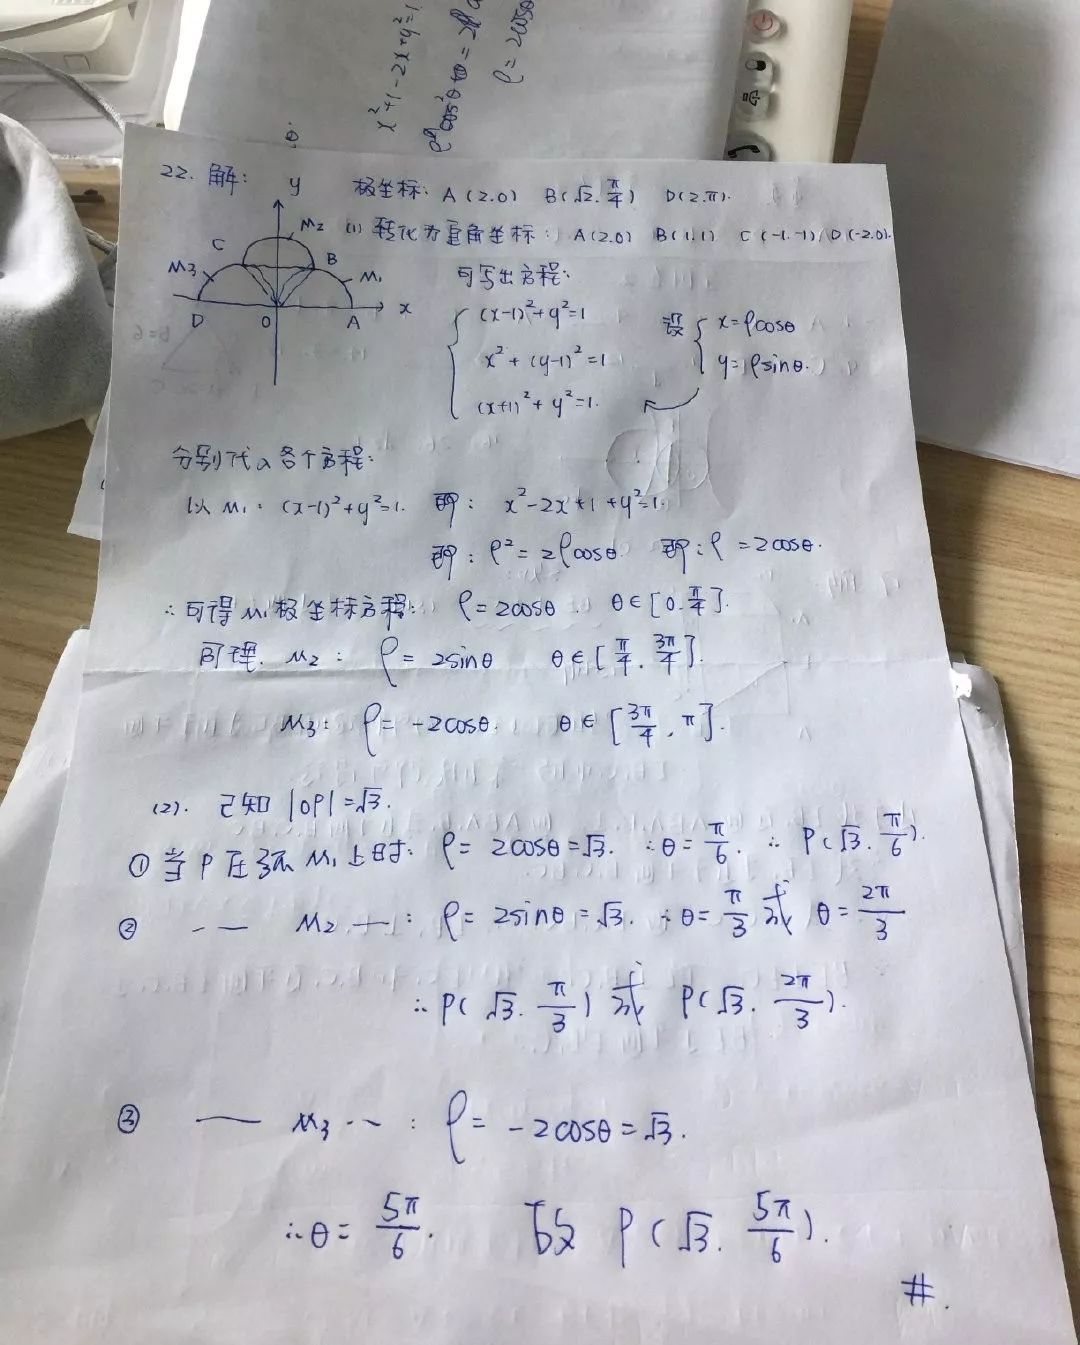 x²+1-2x+y²=1
ρ=2cosθ
22. 解:
y
极坐标: A(2.0) B(√2.π/4) D(2.π).
M2
(1) 转化为直角坐标: A(2.0) B(1.1) C(-1.-1) D(-2.0).
C
B
M3
M1
D
O
A
x
可写出方程:
(x-1)²+y²=1
x²+(y-1)²=1
(x+1)²+y²=1.
设 { x=ρcosθ
y=ρsinθ.
分别代入各个方程:
以 M1: (x-1)²+y²=1. 即: x²-2x+1+y²=1.
即: ρ²=2ρcosθ. 即: ρ=2cosθ.
∴可得M1极坐标方程: ρ=2cosθ θ∈[0.π/4].
同理. M2: ρ=2sinθ θ∈[π/4.3π/4].
M3: ρ=-2cosθ. θ∈[3π/4.π].
(2). 已知|OP|=√3.
① 当P在弧M1上时: ρ=2cosθ=√3. ∴θ=π/6. ∴P(√3.π/6).
② -— M2 —: ρ=2sinθ=√3. ∴θ=π/3 或 θ=2π/3
∴P(√3.π/3) 或 P(√3.2π/3).
③ — M3 --: ρ=-2cosθ=√3.
∴θ=5π/6. 故 P(√3.5π/6).
#.